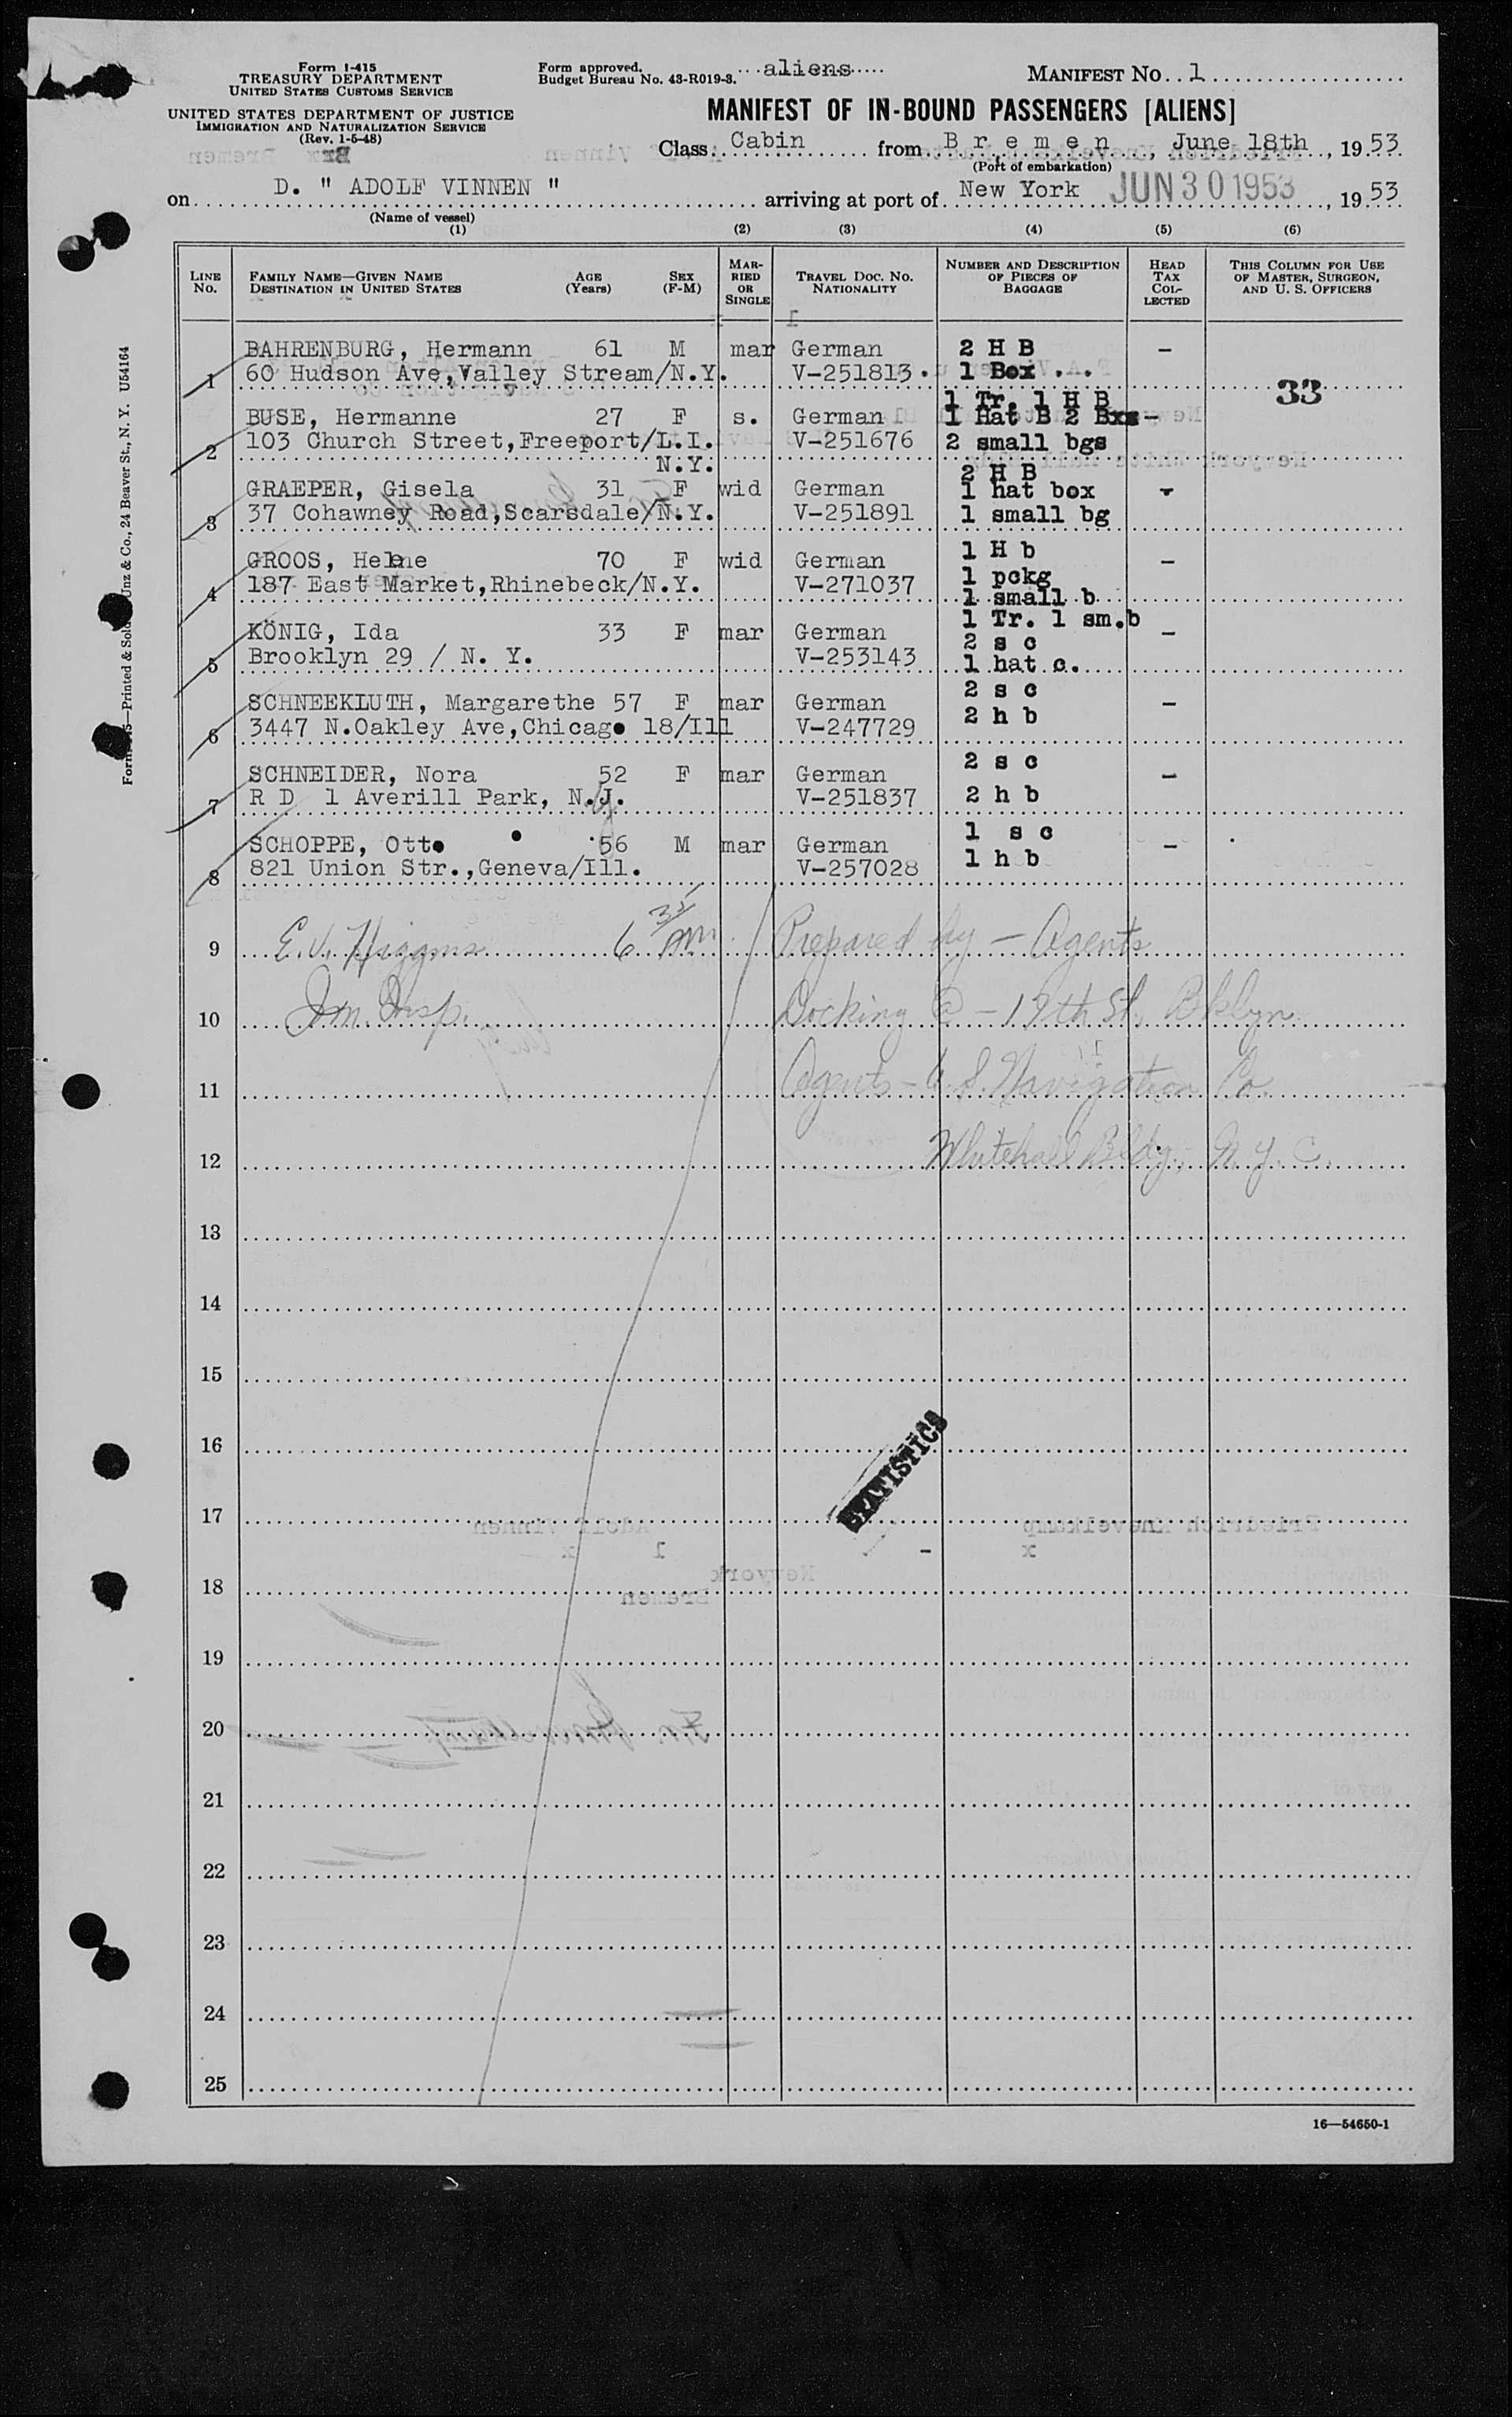 Form I-415
TREASURY DEPARTMENT
UNITED STATES CUSTOMS SERVICE
UNITED STATES DEPARTMENT OF JUSTICE
IMMIGRATION AND NATURALIZATION SERVICE
(Rev. 1-5-48)
Form approved.
Budget Bureau No. 43-R019-3.
aliens
MANIFEST NO. 1
MANIFEST OF IN-BOUND PASSENGERS [ALIENS]
Class Cabin from Bremen, June 18th, 1953
(Port of embarkation)
on D. " ADOLF VINNEN " arriving at port of New York JUN 30 1953, 1953
(Name of vessel)
(1) (2) (3) (4) (5) (6)
LINE No. FAMILY NAME—GIVEN NAME DESTINATION IN UNITED STATES AGE (Years) SEX (F-M) MARRIED OR SINGLE TRAVEL DOC. NO. NATIONALITY NUMBER AND DESCRIPTION OF PIECES OF BAGGAGE HEAD TAX COLLECTED THIS COLUMN FOR USE OF MASTER, SURGEON, AND U. S. OFFICERS
BAHRENBURG, Hermann 61 M mar German 2 H B -
1 60 Hudson Ave,Valley Stream/N.Y. V-251813 1 Box
33
1 Tr. 1 H B
BUSE, Hermanne 27 F s. German 1 Hat B 2 Bxs -
2 103 Church Street,Freeport/L.I. V-251676 2 small bgs
N.Y.
2 H B
GRAEPER, Gisela 31 F wid German 1 hat box -
3 37 Cohawney Road,Scarsdale/N.Y. V-251891 1 small bg
1 H b
GROOS, Helene 70 F wid German -
4 187 East Market,Rhinebeck/N.Y. V-271037 1 pckg
1 small b
1 Tr. 1 sm.b
KÖNIG, Ida 33 F mar German 2 s c -
5 Brooklyn 29 / N. Y. V-253143 1 hat c.
2 s c
SCHNEEKLUTH, Margarethe 57 F mar German -
6 3447 N.Oakley Ave,Chicago 18/Ill V-247729 2 h b
2 s c
SCHNEIDER, Nora 52 F mar German -
7 R D 1 Averill Park, N.J. V-251837 2 h b
1 s c
SCHOPPE, Otto 56 M mar German -
8 821 Union Str.,Geneva/Ill. V-257028 1 h b
9 E.V. Higgins 6 35 Prepared by - Agents
10 Im. Insp. Docking @ - 19th St. Bklyn
11 Agents - U.S. Navigation Co.
12 Whitehall Bldg, N.Y.C.
13
14
15
16
STATISTICS
17
18
19
20
21
22
23
24
25
16—54650-1
Unz & Co., 24 Beaver St., N. Y. U54164